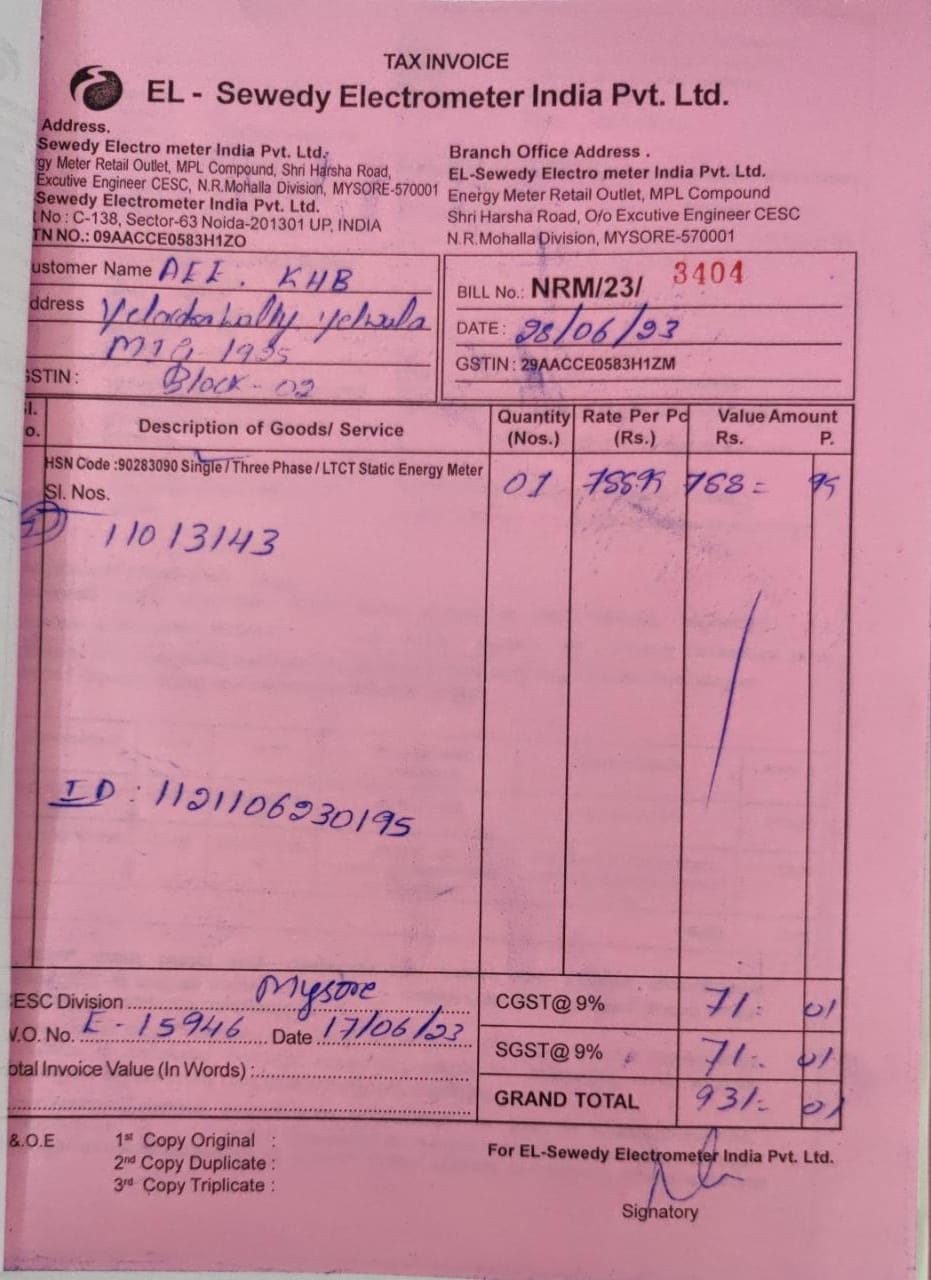 TAX INVOICE
EL - Sewedy Electrometer India Pvt. Ltd.
Address.
Sewedy Electro meter India Pvt. Ltd.
gy Meter Retail Outlet, MPL Compound, Shri Harsha Road,
Excutive Engineer CESC, N.R.Mohalla Division, MYSORE-570001
Sewedy Electrometer India Pvt. Ltd.
No : C-138, Sector-63 Noida-201301 UP, INDIA
TN NO.: 09AACCE0583H1ZO
Branch Office Address .
EL-Sewedy Electro meter India Pvt. Ltd.
Energy Meter Retail Outlet, MPL Compound
Shri Harsha Road, O/o Excutive Engineer CESC
N.R.Mohalla Division, MYSORE-570001
ustomer Name AEE. KHB
ddress
MIG 1935
STIN : Block - 02
BILL No.: NRM/23/ 3404
DATE : 28/06/23
GSTIN : 29AACCE0583H1ZM
l. o. Description of Goods/ Service Quantity (Nos.) Rate Per Pc (Rs.) Value Amount Rs. P.
HSN Code :90283090 Single / Three Phase / LTCT Static Energy Meter 01
Sl. Nos.
11013143
ID : 1121106230195
ESC Division Mysore
V.O. No. E - 15946 Date 17/06/23
otal Invoice Value (In Words) :
CGST@ 9% 71 = 01
SGST@ 9% 71 = 01
GRAND TOTAL 931 = 01
&.O.E
1st Copy Original :
2nd Copy Duplicate :
3rd Copy Triplicate :
For EL-Sewedy Electrometer India Pvt. Ltd.
Signatory